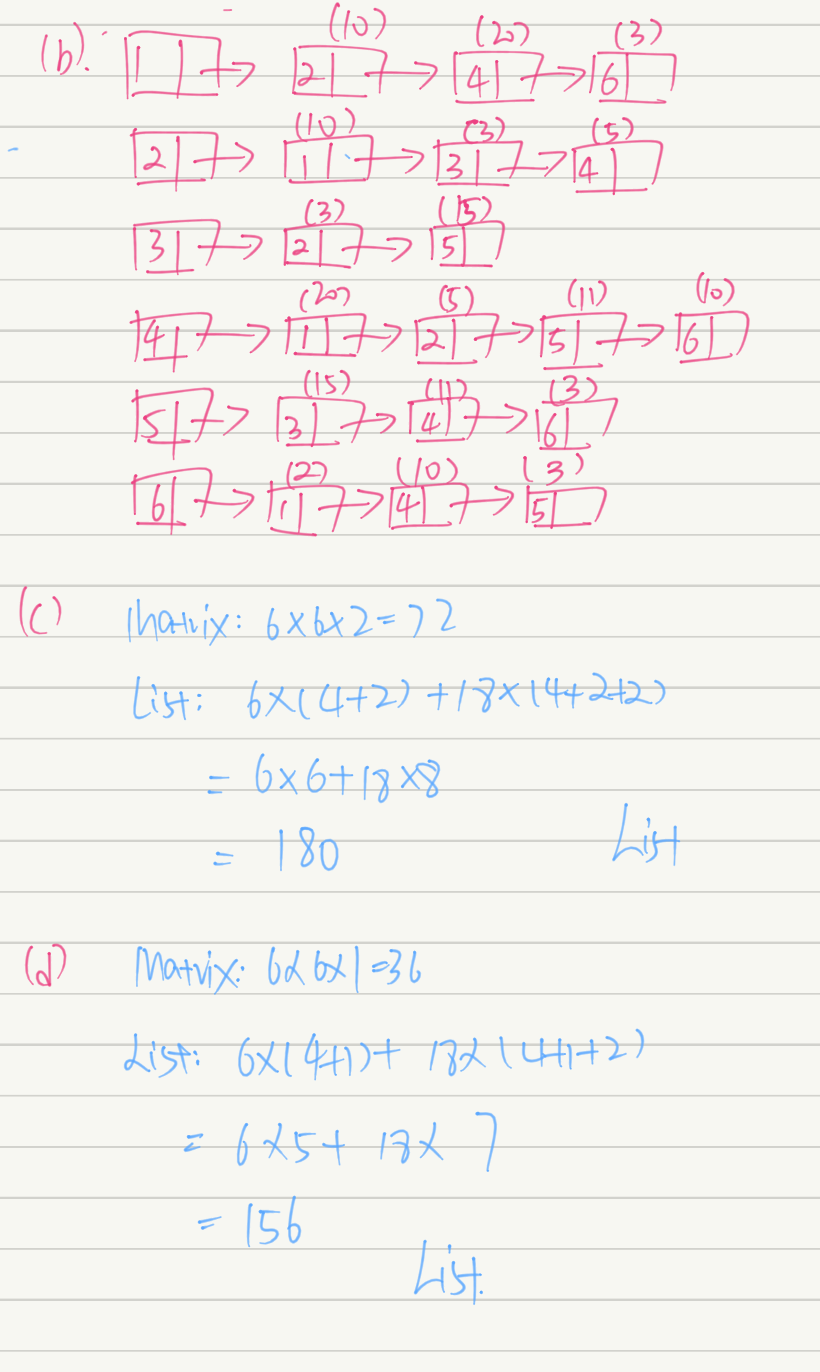 (b). 1 → (10) 2 → (20) 4 → (3) 6
2 → (10) 1 → (3) 3 → (5) 4
3 → (3) 2 → (15) 5
4 → (20) 1 → (5) 2 → (11) 5 → (10) 6
5 → (15) 3 → (11) 4 → (3) 6
6 → (2) 1 → (10) 4 → (3) 5
(c) Matrix: 6×6×2=72
List: 6×(4+2)+18×(4+2+2)
= 6×6+18×8
= 180 List
(d) Matrix: 6×6×1=36
List: 6×(4+1)+ 18×(4+1+2)
= 6×5+ 18× 7
= 156
List.